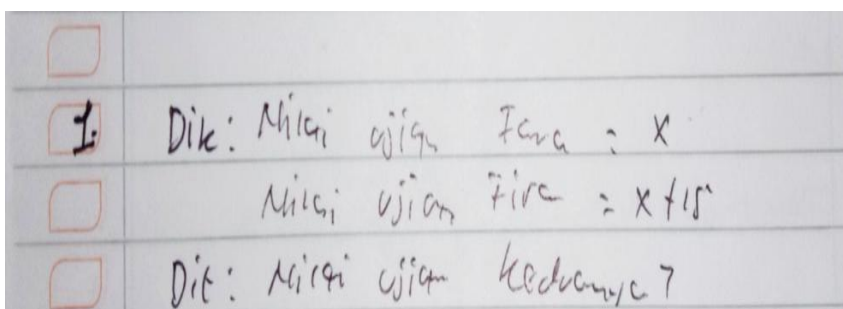 1. Dik: Nilai ujian Fara = x
Nilai ujian Fira = x + 15
Dit: Nilai ujian keduanya?